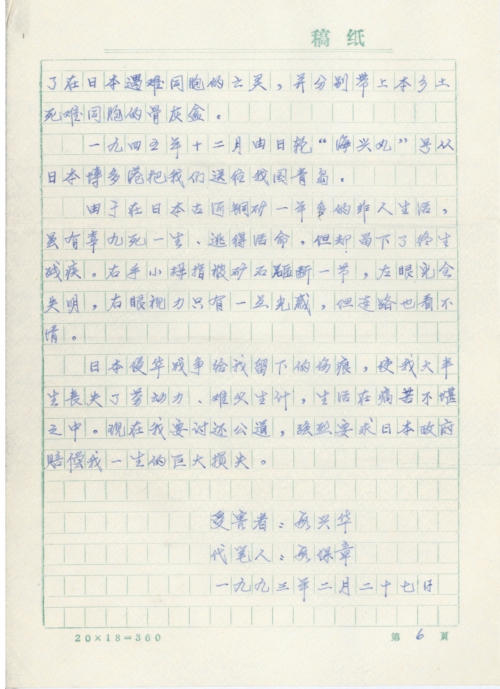 稿纸
了在日本遇难同胞的亡灵，并分别带上本乡土
死难同胞的骨灰盒。
一九四五年十二月由日轮“海兴丸”号从
日本博多港把我们送往我国青岛。
由于在日本古河铜矿一年多的非人生活，
虽有幸九死一生、逃得活命，但却留下了终生
残疾。右手小拇指被矿石砸断一节，左眼完全
失明，右眼视力只有一点光感，但连路也看不
清。
日本侵华战争给我留下的伤痕，使我大半
生丧失了劳动力、难以生计，生活在痛苦不堪
之中。现在我要讨还公道，强烈要求日本政府
赔偿我一生的巨大损失。
受害者：兴华
代笔人：保章
一九九三年二月二十七日
20×18=360
第 6 页